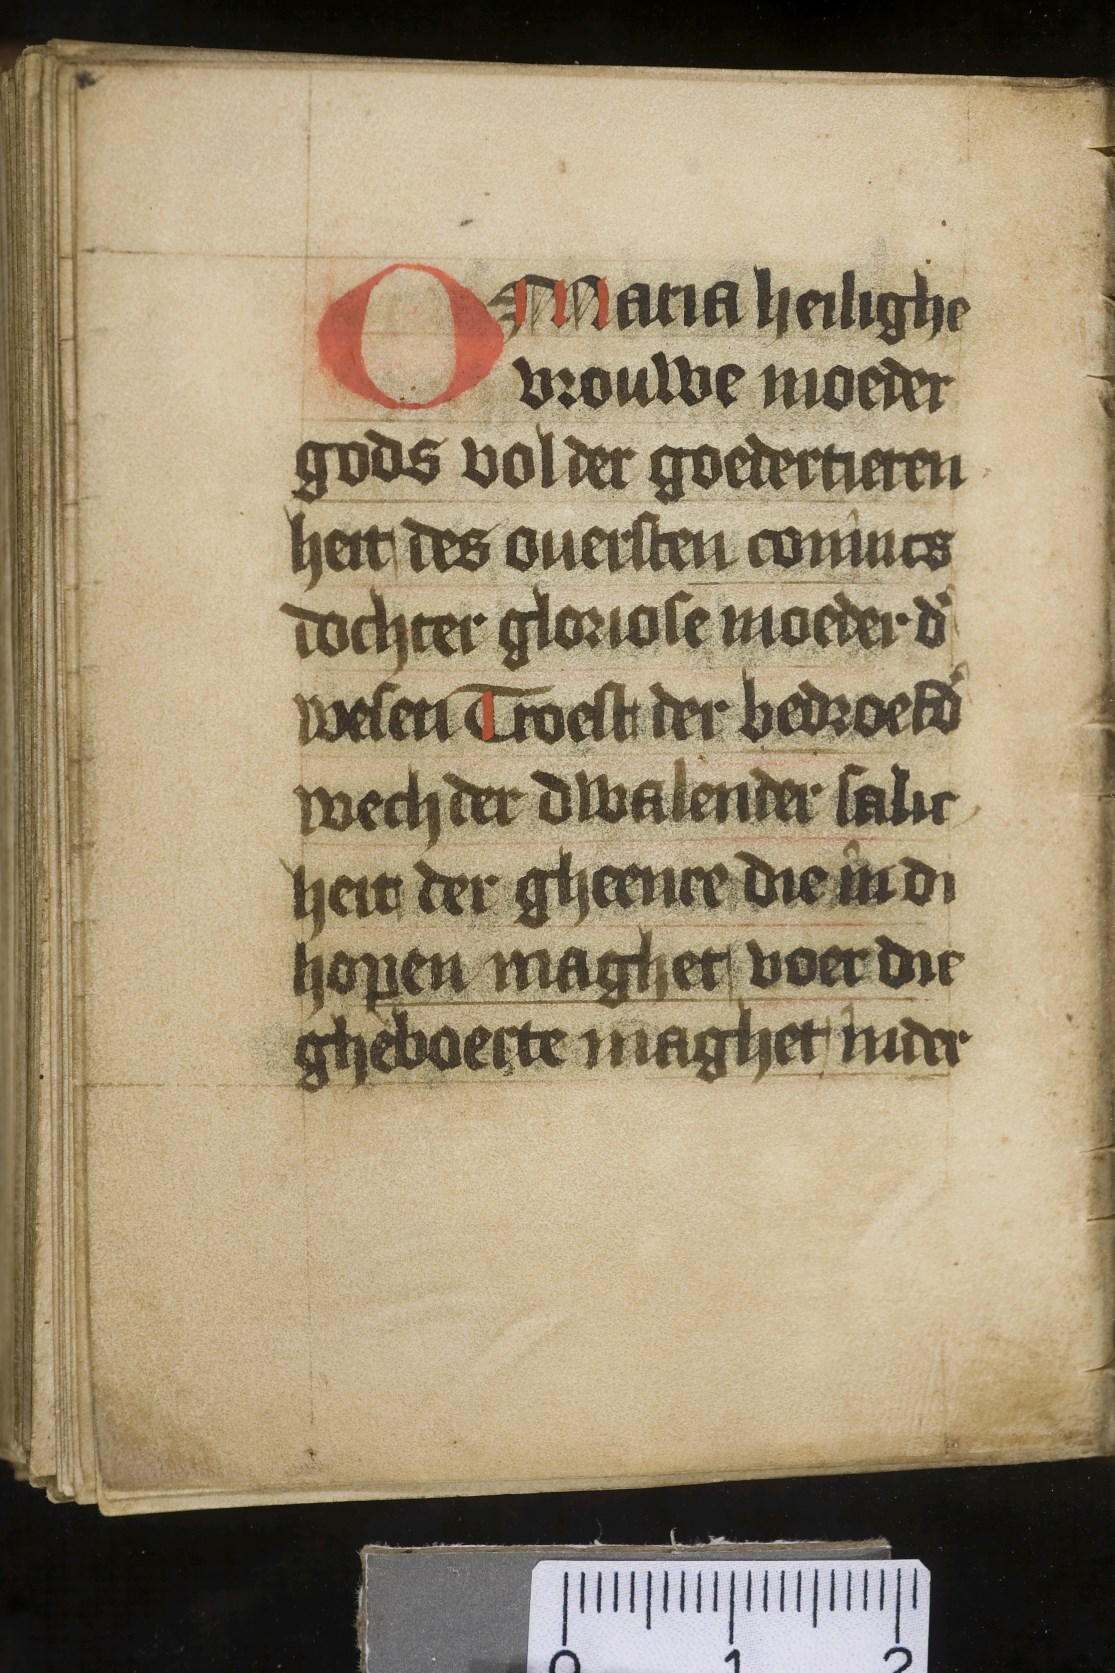 O Maria heilighe
vrouwe moeder
gods vol der goedertieren
heit des ouersten conincs
dochter gloriose moeder d'
wesen Troest der bedroefd'
wech der dwalender salic
heit der gheenre die in di
hopen maghet voer die
gheboerte maghet inder
0 1 2